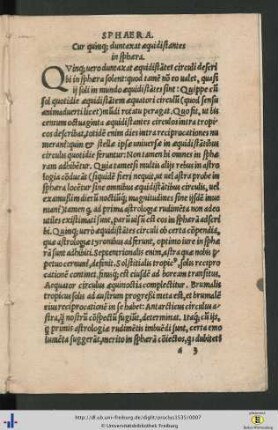 SPHAERA.
Cur quinq; duntaxat æquidistantes
in sphæra.
Quinq; vero duntaxat æquidistãtes circuli describi
bi in sphæra solent: quod tamẽ nõ eo ualet, quasi
ij soli in mundo æquidistãtes sint: Quippe cũ
sol quotidie æquidistãtem æquatori circulũ (quod sensu
animaduerti licet) mũdi rotatu peragat. Quo fit, ut bis
centum octuaginta æquidistantes circulos intra tropi-
cos describat, totidẽ enim dies intra reciprocationes nu
merant: quin & stellæ ipsæ uniuersæ in æquidistãtibus
circulis quotidie feruntur: Non tamen hi omnes in sphæ
ram adhibẽtur. Quia tametsi multis alijs rebus in astro-
logia cõducãt (siquidẽ fieri nequit, ut uel astra probe in
sphæra locẽtur sine omnibus æquidistãtibus circulis, uel
examussim dierũ noctiũq; magnitudines sine ijsdẽ inue
niant) tamen q, ad prima astrologiæ rudimẽta non adeo
utiles existimati sunt, parũ usui est eos in sphærã adscri
bi. Quinq; uero æquidistãtes circuli ob certa cõpendia,
quæ astrologiæ tyronibus adferunt, optimo iure in sphæ
rã sunt adhibiti. Septentrionalis enim, astra quæ nobis p
petuo cernunt, definit. Solstitialis tropicꝰ, solis recipro
cationẽ continet, simulq; est eiusdẽ ad boream transitus,
Aequator circulus æquinoctia complectitur. Brumalis
tropicus solis ad austrum progressi meta est, et brumalẽ
eius reciprocationem in se habet: Antarcticus circulus a-
stra, q̃ nostrũ cõspectũ fugiũt, determinat. Itaq; cũ ijs,
q̃ primis astrologiæ rudimẽtis imbuẽdi sunt, certa emo
lumẽta suggerãt, merito in sphærã cõiectos, q; dubitet?
a 3
http://dl.ub.uni-freiburg.de/diglit/proclus1535/0007
© Universitätsbibliothek Freiburg